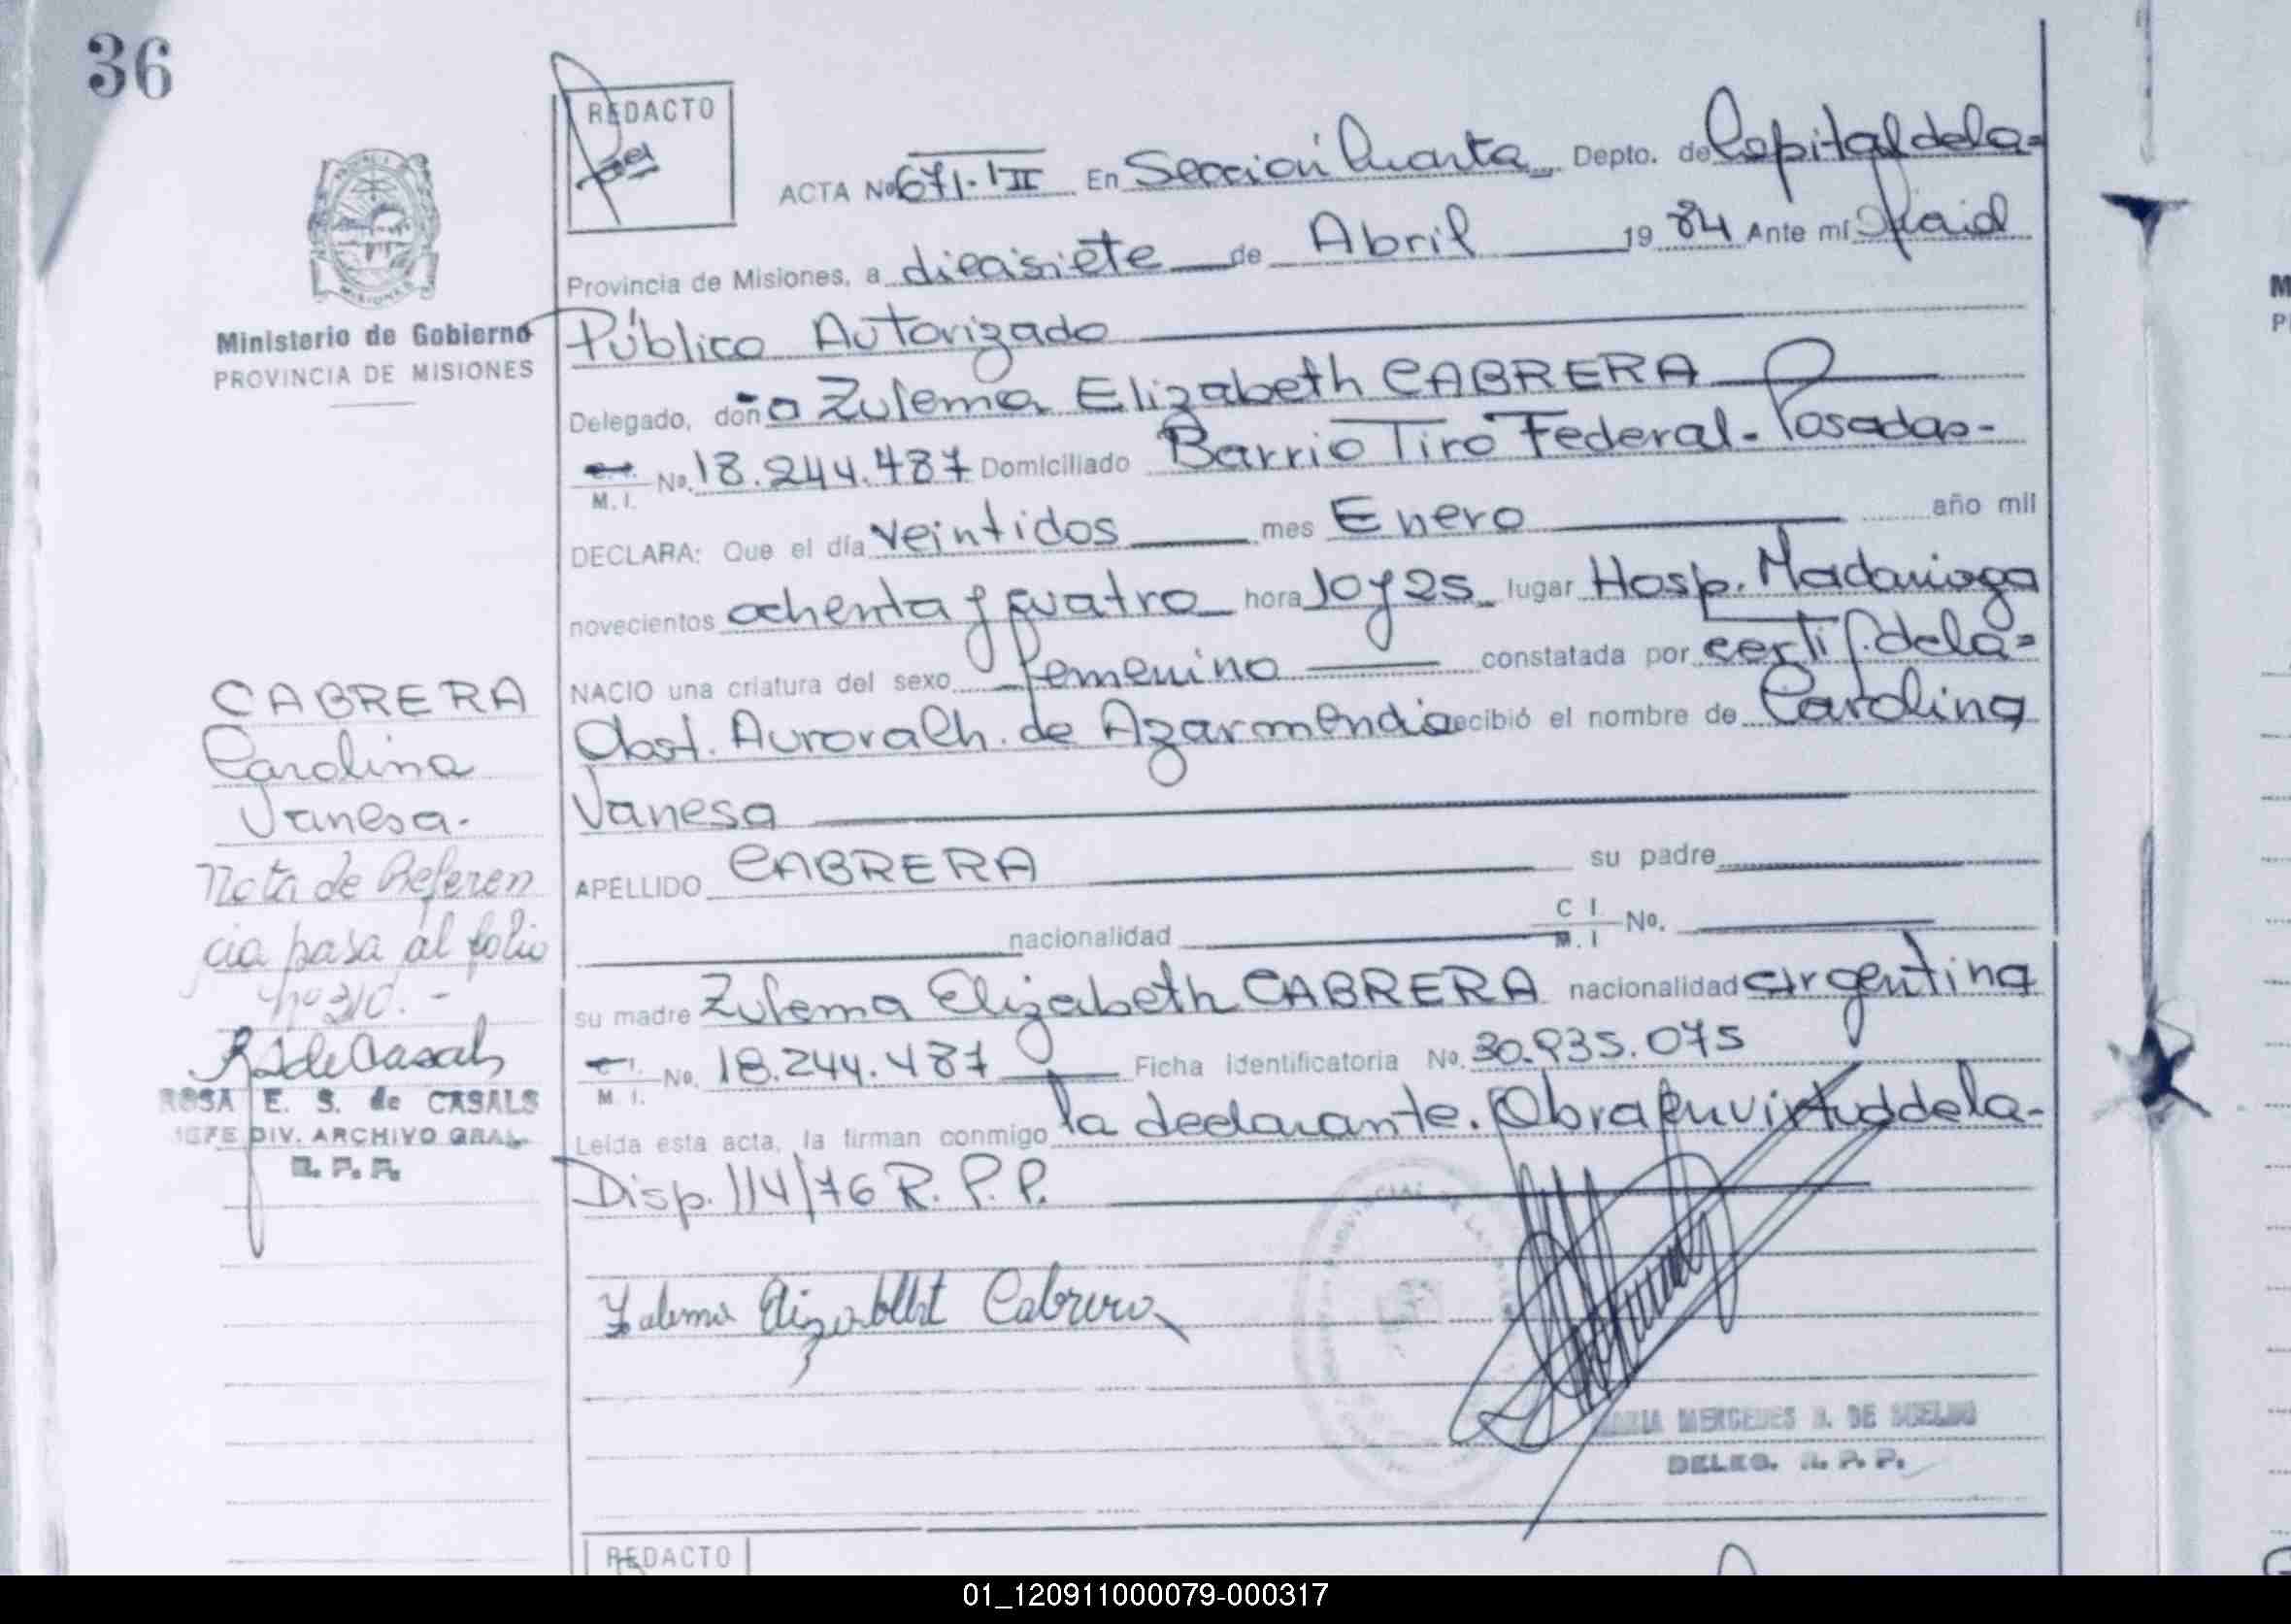 36
REDACTO
ACTA No 671. III En Sección Cuarta Depto. de Capital de la=
Provincia de Misiones, a diecisiete de Abril 19 84 Ante mí
Ministerio de Gobierno
PROVINCIA DE MISIONES
Público Autorizado
Delegado, doña Zulema Elizabeth CABRERA
M. I. No. 18.244.487 Domiciliado Barrio Tiro Federal - Posadas-
DECLARA: Que el día veintidos mes Enero año mil
novecientos ochenta y cuatro hora 10 y 25 lugar Hosp. Madariaga
NACIO una criatura del sexo femenino constatada por certif. de la=
Obst. Aurora Ch. de Azarmendia recibió el nombre de Carolina
Vanesa
APELLIDO CABRERA su padre
nacionalidad C I M. I No.
su madre Zulema Elizabeth CABRERA nacionalidad argentina
M. I. No. 18.244.487 Ficha Identificatoria No. 30.935.075
Leída esta acta, la firman conmigo la declarante. Obra en virtud de la-
Disp. 114/76 R. P. P.
Zulema Elizabeht Cabrera
MARIA MERCEDES
DELEG. R. P. P.
CABRERA
Carolina
Vanesa.
Nota de Referen
cia pasa al folio
nº 310. -
R S de Casals
ROSA E. S. de CASALS
JEFE DIV. ARCHIVO GRAL.
R. P. P.
REDACTO
01_120911000079-000317